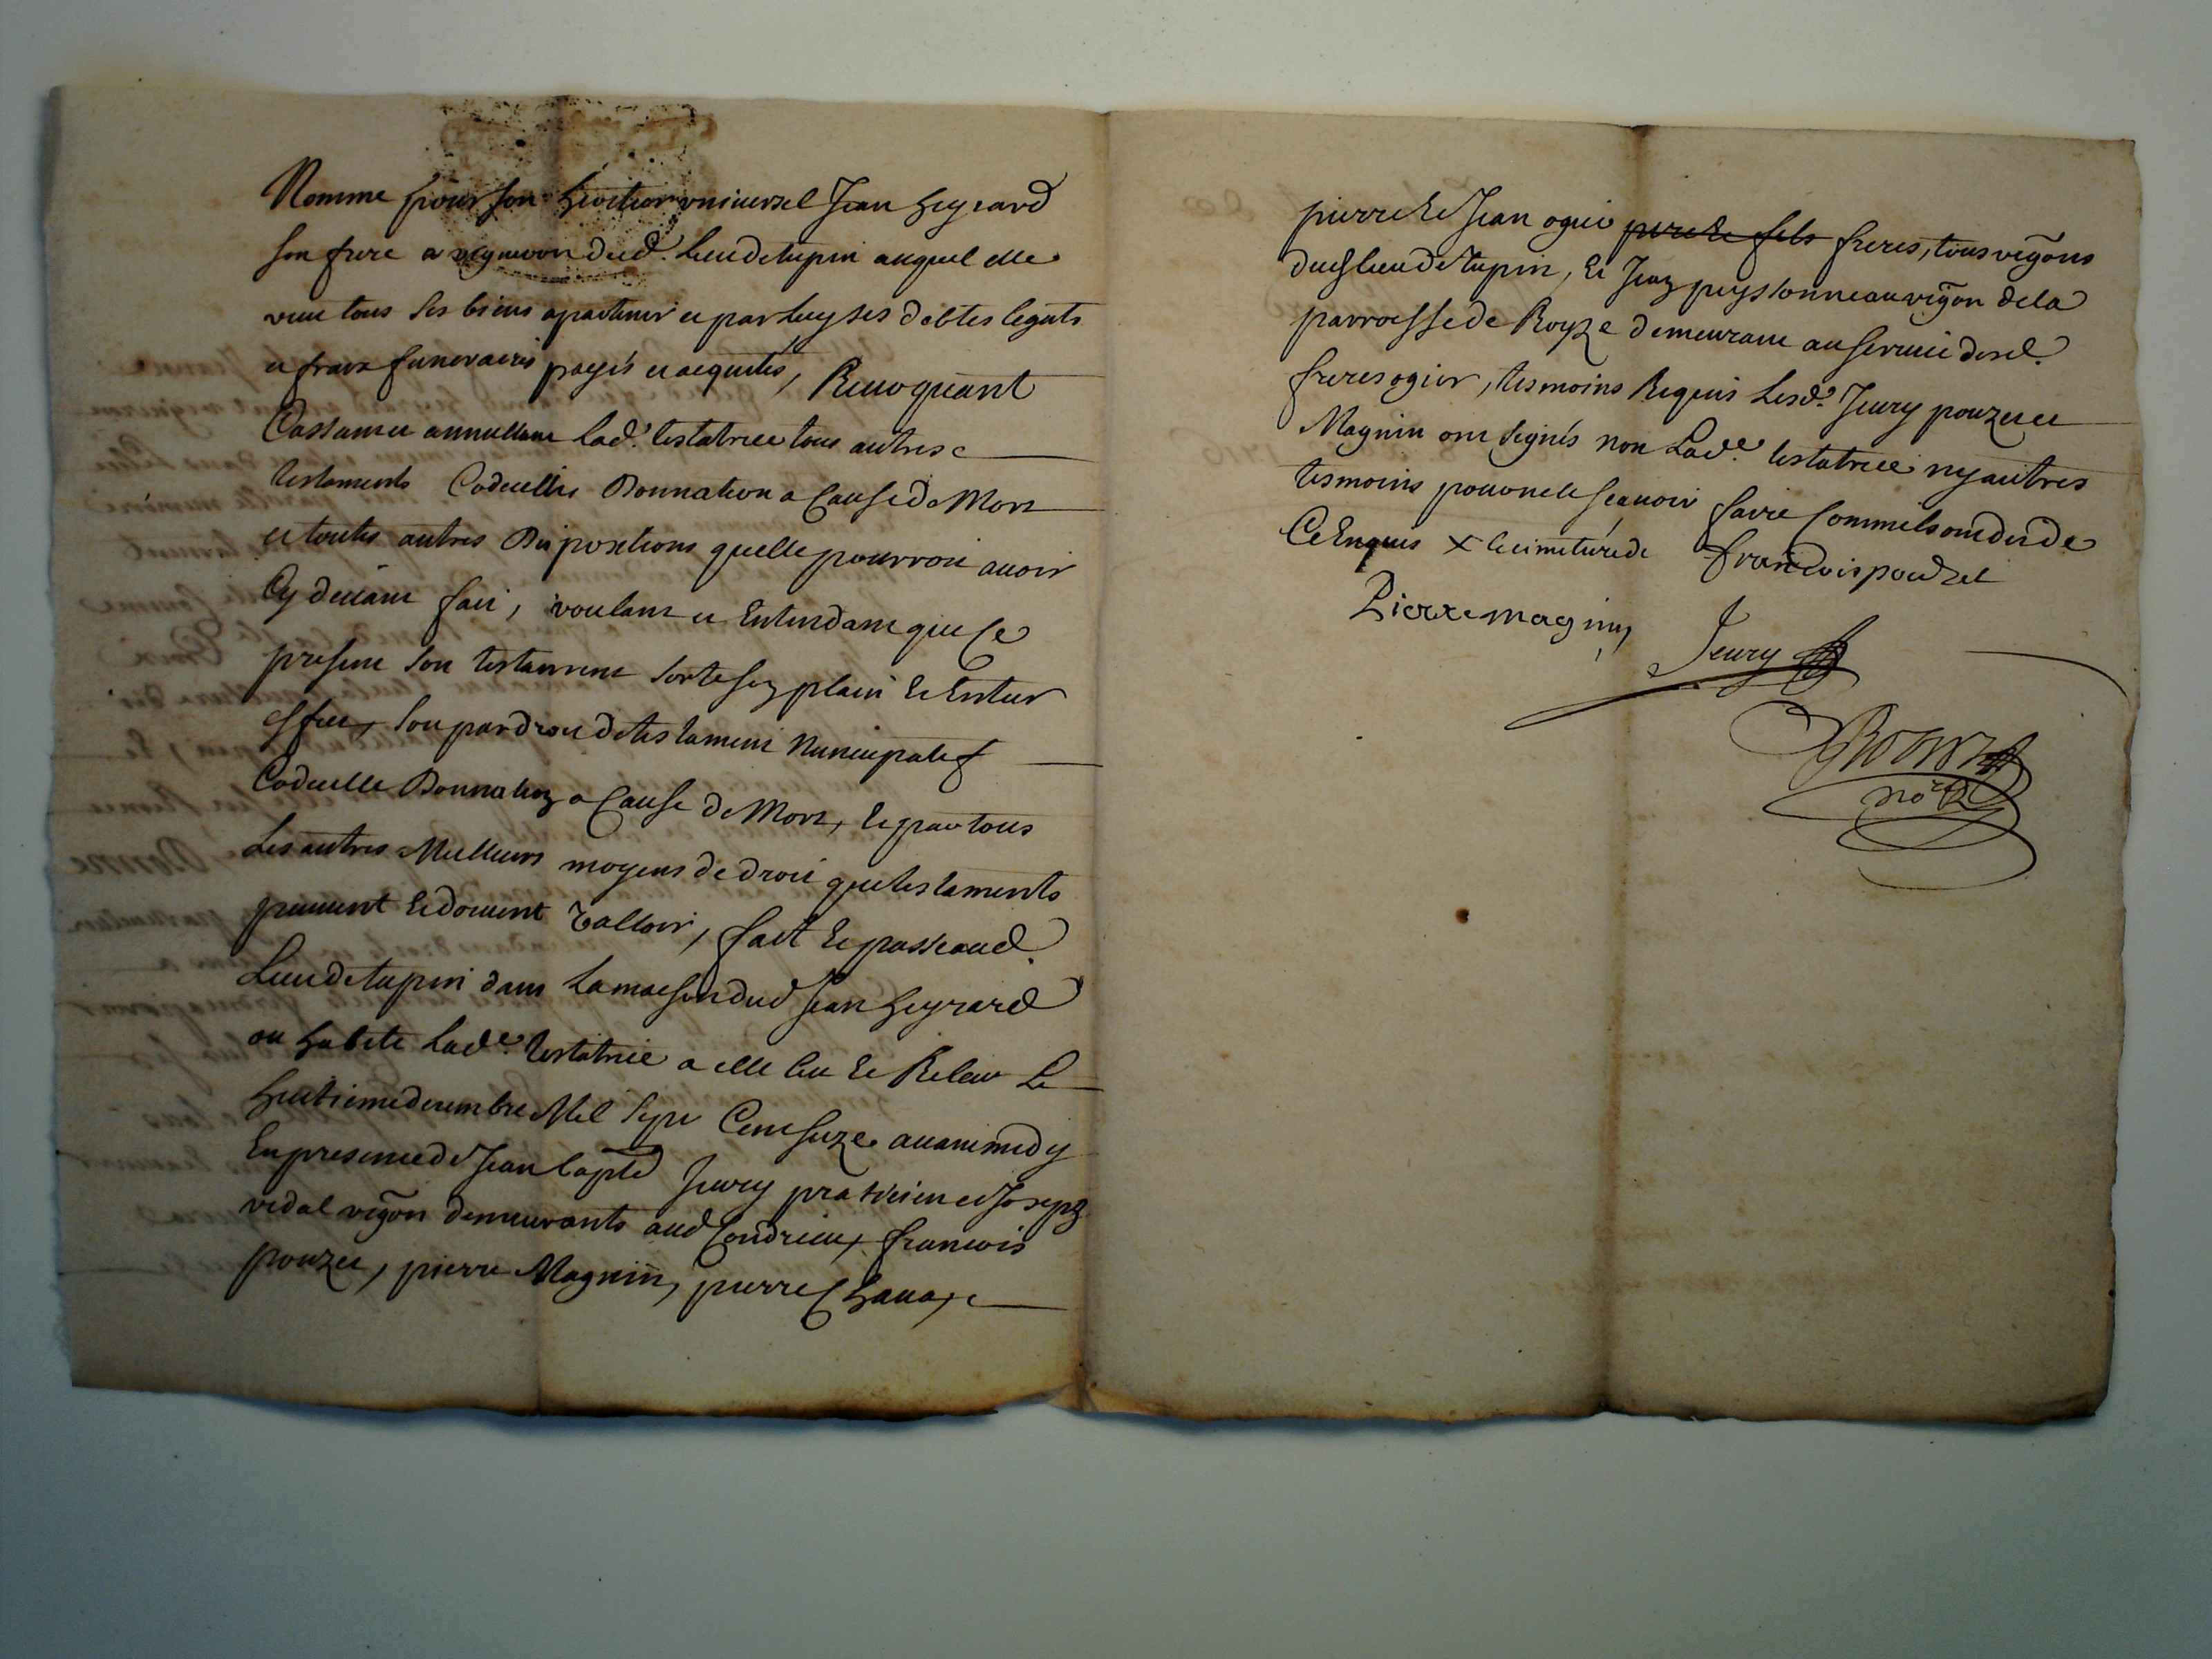 Nomme pour son heritier universel Jean heyrard
son frere a vigneron dud. lieu de tupin auquel elle
veut tous ses biens apartenir et par luy ses debtes legats
et fraix funeraires payés et acquités, Revoquant
Cassant et annullant lad. testatrice tous autres
testaments Codicilles Donnation a Cause de Mort
et toutes autres Dispositions quelle pourroit avoir
Cy devant fait, voulant et Entendant que Ce
present son testament sorte son plain et Entier
effect, soit par droit de testament Nuncupatif
Codicille Donnation a Cause de Mort, et par tous
Les autres Meilleurs moyens de droit que testaments
peuvent et doivent valloir, fait et passé aud.
Lieu de tupin dans La maison dud Jean heyrard
ou habite Lad.e testatrice a elle leu et Releu Le
huitieme decembre Mil sept Cent seize avant midy
En presence de Jean bapte Jeury praticien et Joseph
vidal vigñon demeurants aud Condrieu, francois
pouzet, pierre Magnin, pierre Chavaxe
pierre et Jean ogier pere et fils freres, tous vigñons
dud lieu de Tupin, et Jean peyssonneau vigñon de la
parroesse de Royze demeurant au service desd.
freres ogier, tesmoins Requis Lesd. Jeury pouzet et
Magnin ont signés non Lad.e testatrice ny autres
tesmoins pour ne le scavoir faire Comme ils ont dit de
Ce Enquis X de francois pouzet
Pierre magnin
Jeury
nore